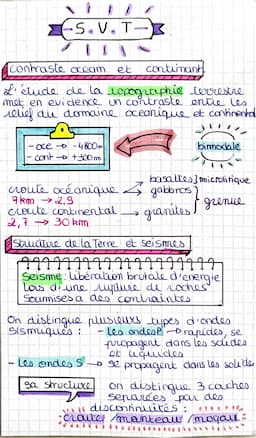 S.V.T
Contraste océan et continant.
L'étude de la topographie terrestre
met en évidence un contraste entre les
relief du domaine océanique et continental
- océ → -4800m
- cont → +300m
bimodale
croute océanique
basaltes } microlitique
gabbros
7km → 2,9
croute continental → granites
grenue
2,7 → 30 km
Structure de la Terre et seismes
Seisme : libération brutale d'énergie
lors d'une rupture de roches
soumises a des contraintes
On distingue plusieurs types d'ondes
sismiques : - les ondes P → rapides, se
propagent dans les solides
et liquides
- Les ondes S → se propagent dans les solides
sa structure
on distingue 3 couches
separées par des
discontinuités :
croute / manteau / noyau